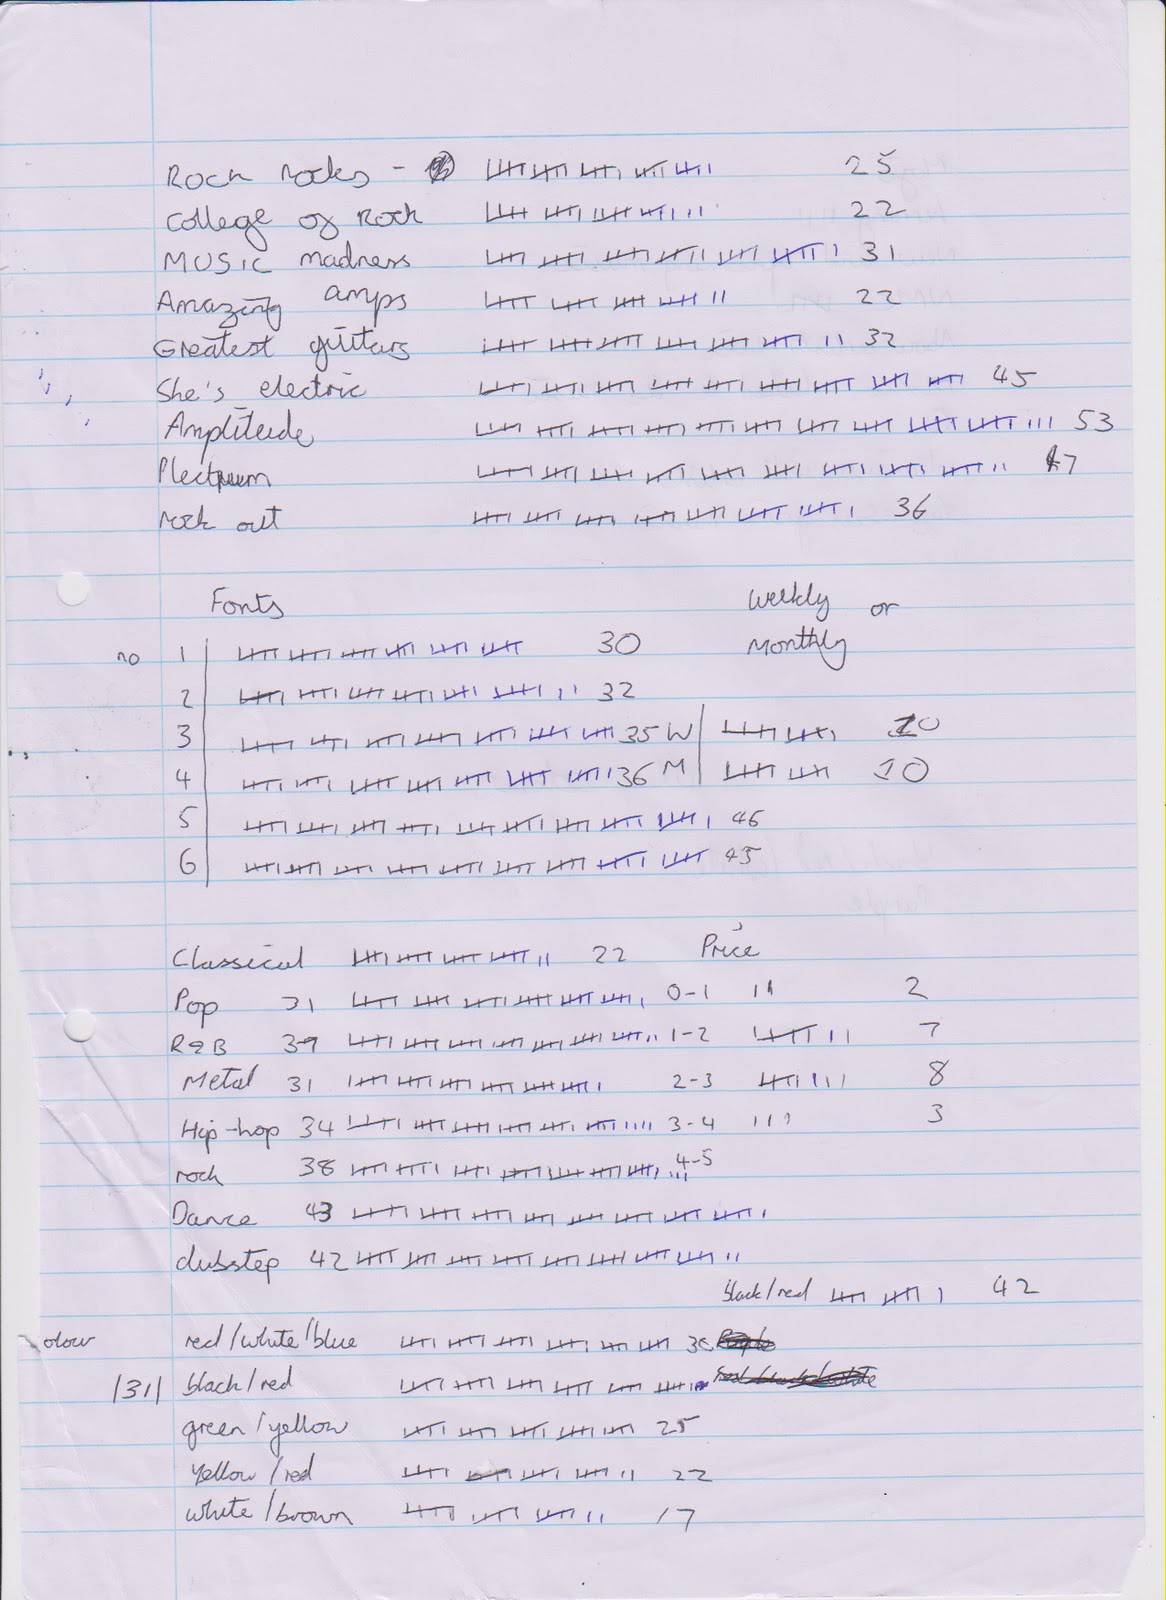 Rock rocks - 25
College of Rock 22
Music madness 31
Amazing amps 22
Greatest guitars 32
She's electric 45
Amplitude 53
Plectrum 47
rock out 36
Fonts weekly or
no 1 30 monthly
2 32
3 35 W 10
4 36 M 10
5 46
6 45
Classical 22 Price
Pop 31 0-1 2
R&B 37 1-2 7
Metal 31 2-3 8
Hip-hop 34 3-4 3
rock 38 4-5
Dance 43
dubstep 42
black/red 42
olour red/white/blue 30
|31| black/red
green/yellow 25
yellow/red 22
white/brown 17